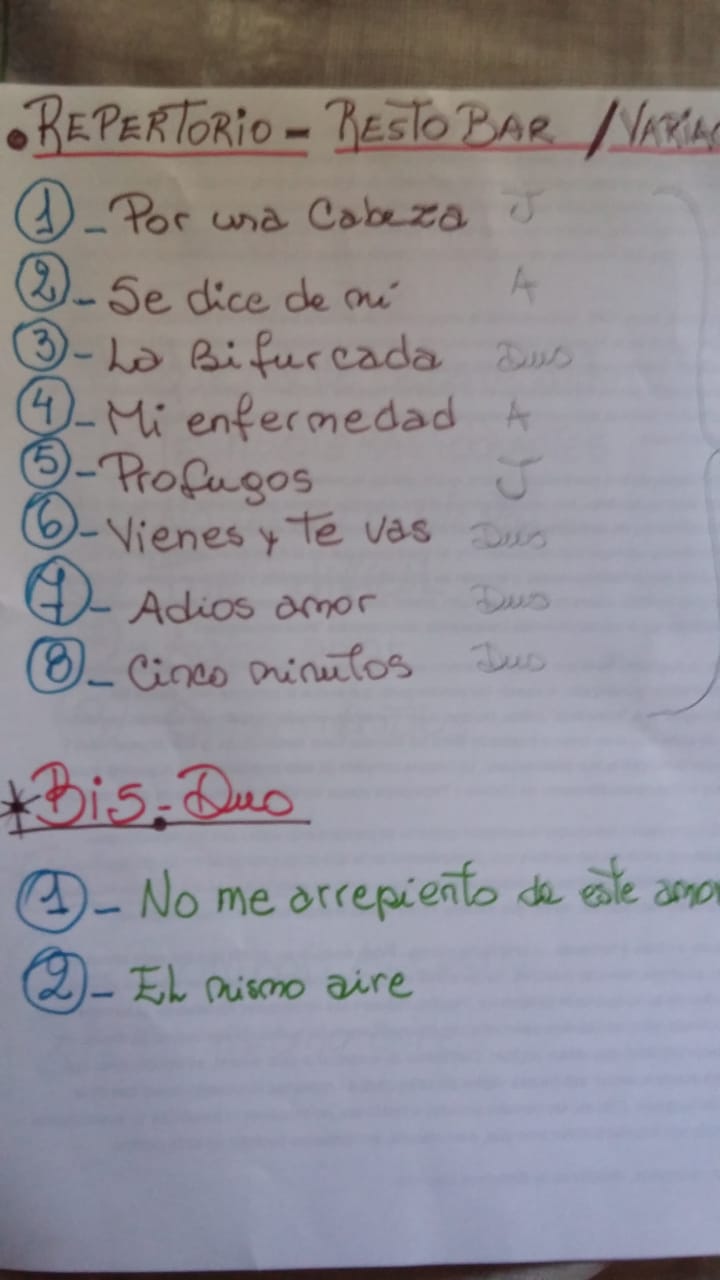 • REPERTORIO - RESTO BAR / VARIAD
1 - Por una Cabeza J
2 - Se dice de mi A
3 - La Bifurcada Duo
4 - Mi enfermedad A
5 - Profugos J
6 - Vienes y te vas Duo
7 - Adios amor Duo
8 - Cinco minutos Duo
* Bis - Duo
1 - No me arrepiento de este amor
2 - EL mismo aire